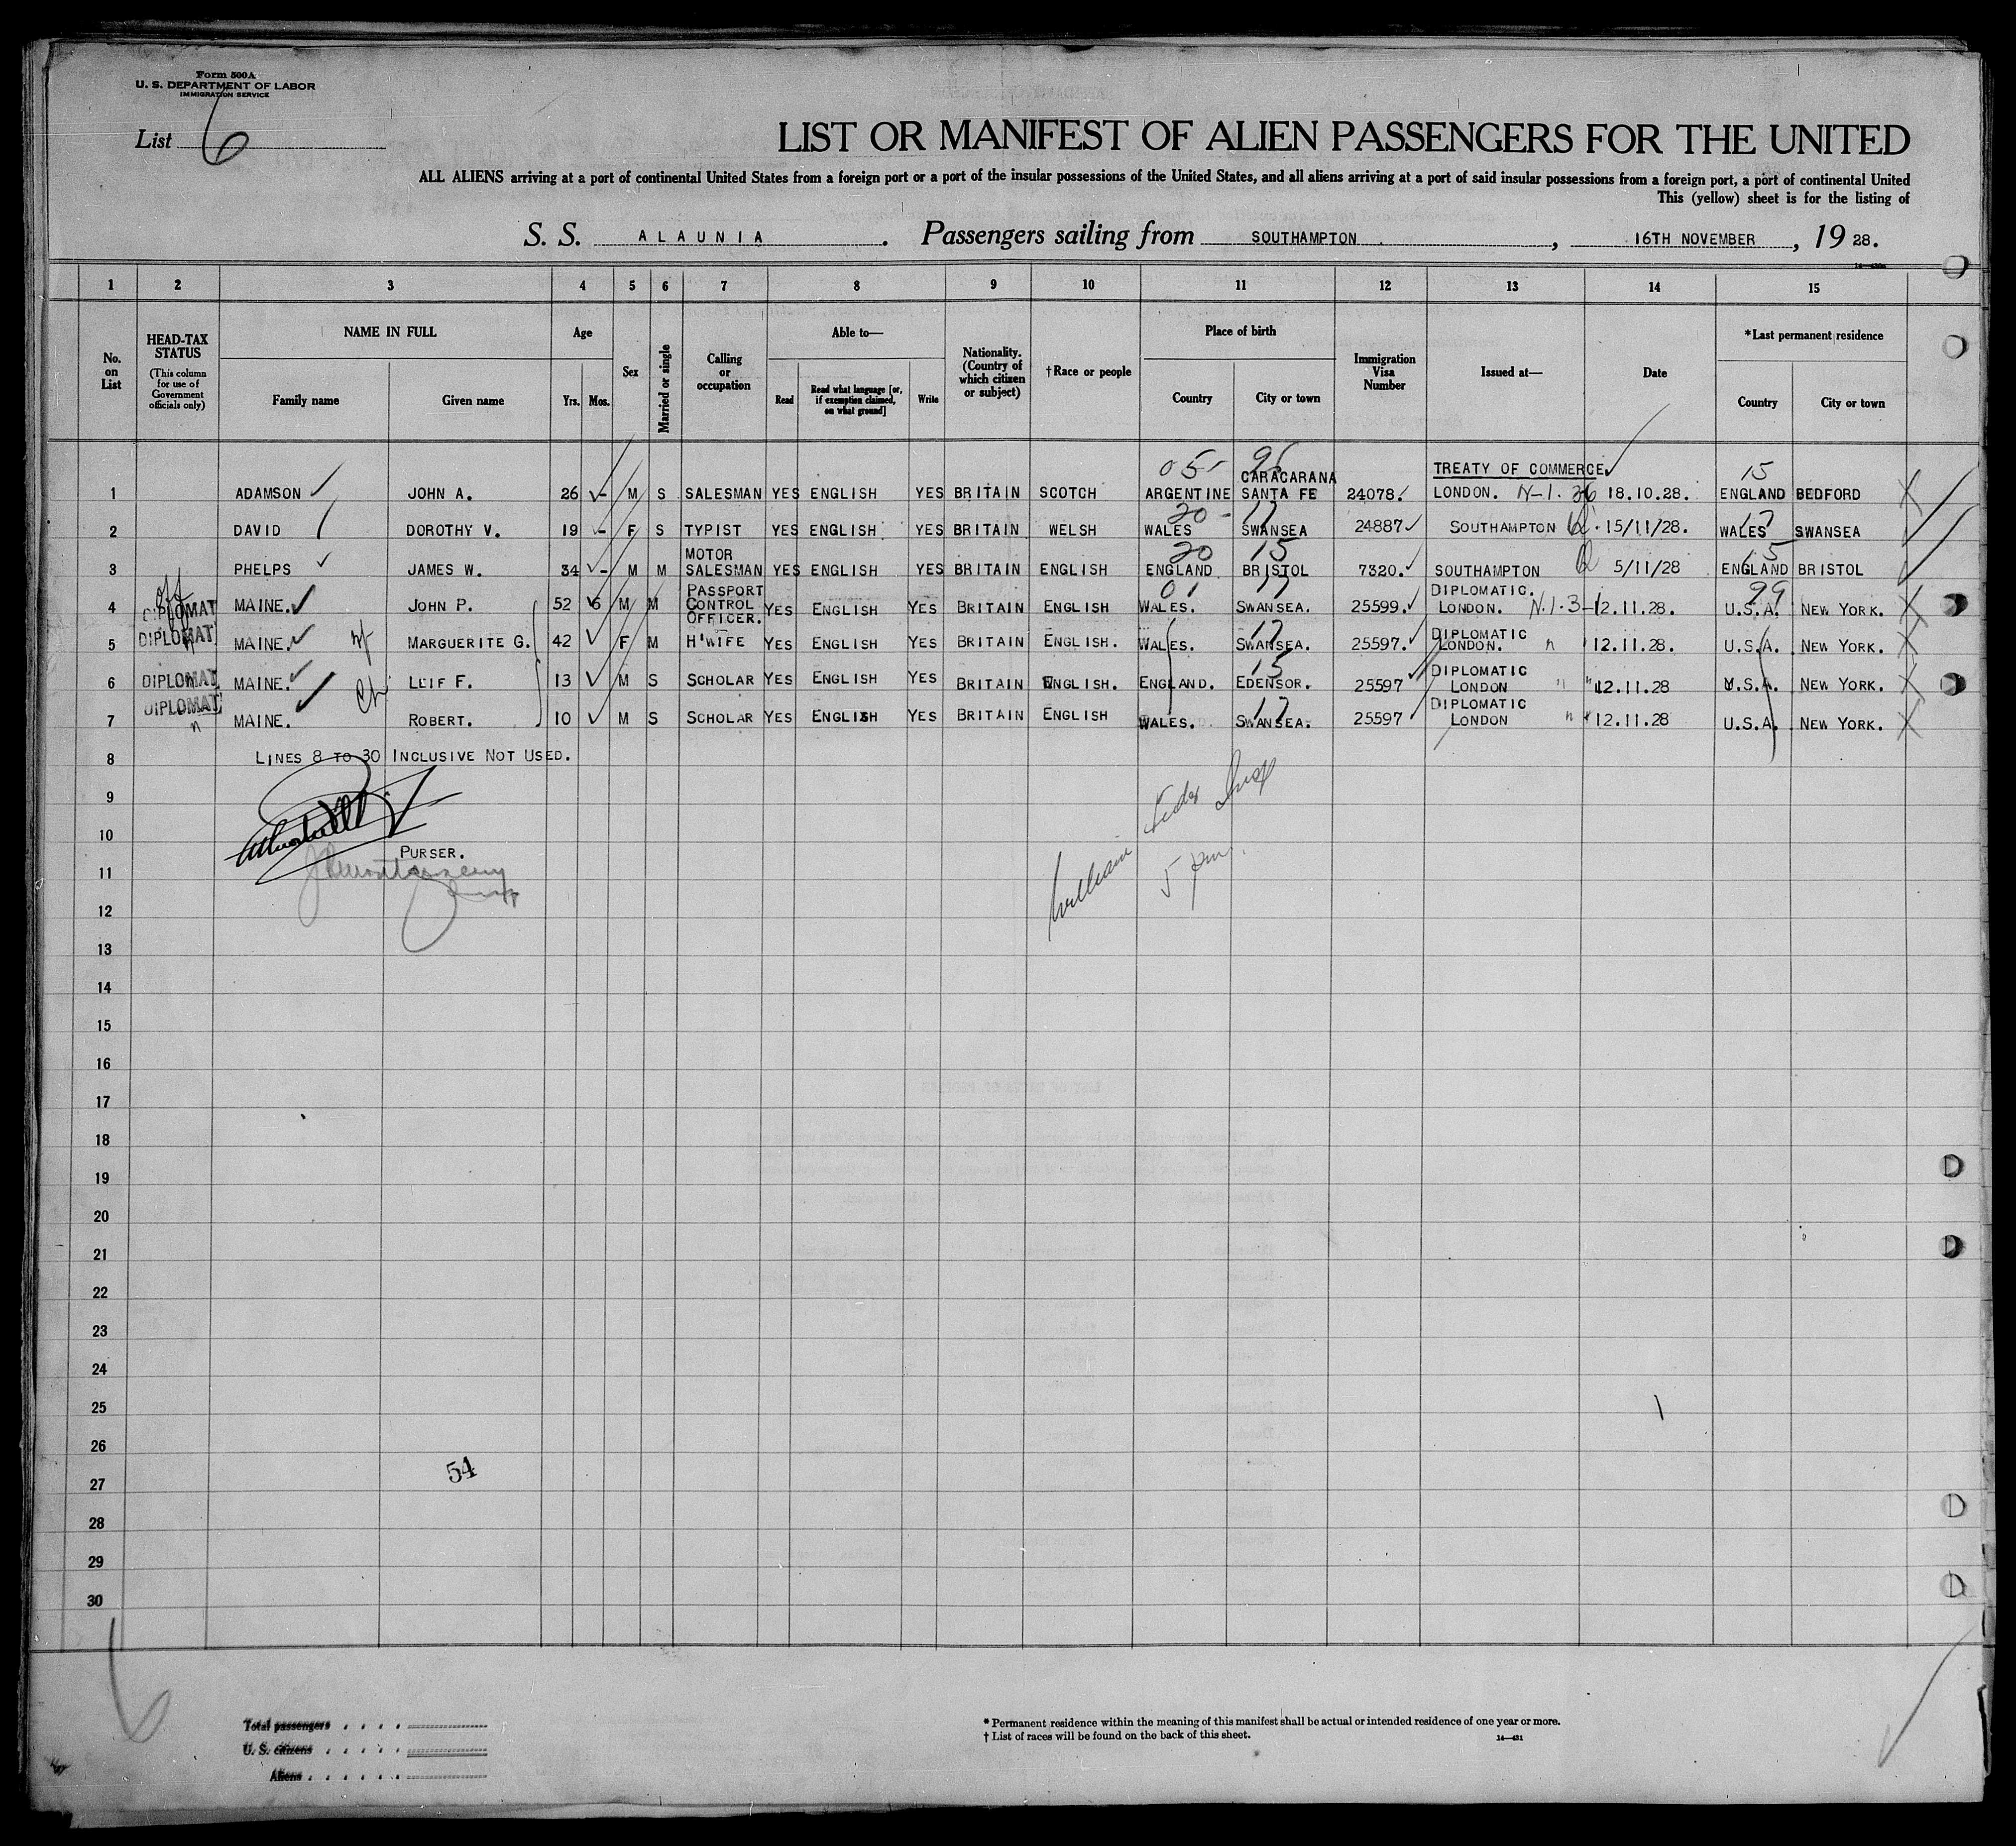 Form 500A
U. S. DEPARTMENT OF LABOR
IMMIGRATION SERVICE
List 6
LIST OR MANIFEST OF ALIEN PASSENGERS FOR THE UNITED
ALL ALIENS arriving at a port of continental United States from a foreign port or a port of the insular possessions of the United States, and all aliens arriving at a port of said insular possessions from a foreign port, a port of continental United
This (yellow) sheet is for the listing of
S. S. ALAUNIA. Passengers sailing from SOUTHAMPTON, 16TH NOVEMBER, 19 28.
1 2 3 4 5 6 7 8 9 10 11 12 13 14 15
No. on List
HEAD-TAX STATUS
(This column for use of Government officials only)
NAME IN FULL
Family name Given name
Age
Yrs. Mos.
Sex
Married or single
Calling or occupation
Able to—
Read
Read what language [or, if exemption claimed, on what ground]
Write
Nationality. (Country of which citizen or subject)
†Race or people
Place of birth
Country City or town
Immigration Visa Number
Issued at—
Date
*Last permanent residence
Country City or town
05 15
CARACARANA TREATY OF COMMERCE
1 ADAMSON JOHN A. 26 - M S SALESMAN YES ENGLISH YES BRITAIN SCOTCH ARGENTINE SANTA FE 24078. LONDON. 18.10.28. ENGLAND BEDFORD
20 - 17 17
2 DAVID DOROTHY V. 19 - F S TYPIST YES ENGLISH YES BRITAIN WELSH WALES SWANSEA 24887 SOUTHAMPTON 15/11/28. WALES SWANSEA
20 15 15
MOTOR
3 PHELPS JAMES W. 34 - M M SALESMAN YES ENGLISH YES BRITAIN ENGLISH ENGLAND BRISTOL 7320. SOUTHAMPTON 5/11/28 ENGLAND BRISTOL
01 17 99
PASSPORT DIPLOMATIC.
4 DIPLOMAT MAINE. JOHN P. 52 6 M M CONTROL OFFICER. YES ENGLISH YES BRITAIN ENGLISH WALES. SWANSEA. 25599. LONDON. 12.11.28. U.S.A. NEW YORK.
17 DIPLOMATIC
5 DIPLOMAT MAINE. MARGUERITE G. 42 F M H'WIFE YES ENGLISH YES BRITAIN ENGLISH. WALES. SWANSEA. 25597. LONDON. 12.11.28. U.S.A. NEW YORK.
15 DIPLOMATIC
6 DIPLOMAT MAINE. LEIF F. 13 M S SCHOLAR YES ENGLISH YES BRITAIN ENGLISH. ENGLAND. EDENSOR. 25597 LONDON 12.11.28 U.S.A. NEW YORK.
17 DIPLOMATIC
7 DIPLOMAT MAINE. ROBERT. 10 M S SCHOLAR YES ENGLISH YES BRITAIN ENGLISH WALES. SWANSEA. 25597 LONDON 12.11.28 U.S.A. NEW YORK.
8 LINES 8 TO 30 INCLUSIVE NOT USED.
9
10
PURSER.
11
12
13
14
15
16
17
18
19
20
21
22
23
24
25
26
54
27
28
29
30
6
Total passengers
U. S. citizens
Aliens
* Permanent residence within the meaning of this manifest shall be actual or intended residence of one year or more.
† List of races will be found on the back of this sheet.
14—431